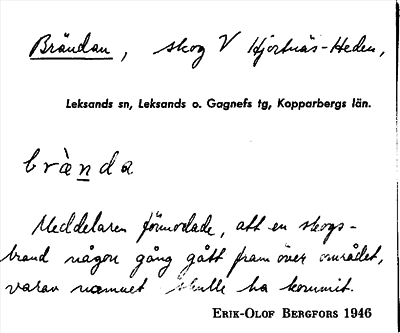 Brändan, skog V Hjortnäs-Heden,
Leksands sn, Leksands o. Gagnefs tg, Kopparbergs län.
brànda
Meddelaren förmodade, att en skogs-
brand någon gång gått fram över området,
varav namnet skulle ha kommit.
ERIK-OLOF BERGFORS 1946